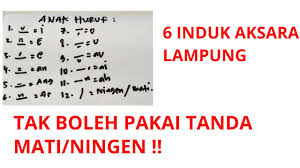 ANAK HURUF :
1. = i
2. = E
3. = e
4. = an
5. = Ang
6. = Ar
7. = o
8. = u
9. = au
10. = ai
11. = ah
12. / = ningen / mati.
6 INDUK AKSARA
LAMPUNG
TAK BOLEH PAKAI TANDA
MATI/NINGEN !!